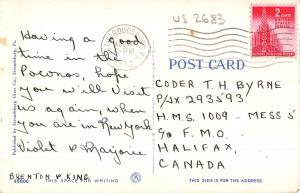 US 2683
STROUDSBURG
PM
2 CENTS
Having a good
time in the
Poconos, hope
you will visit
us again, when
you are in New York
Violet & Marjorie
BRENTON & KING
POST CARD
CODER T H BYRNE
P/JX 293593
H.M.S. 1009 - MESS 5
c/o F.M.O.
HALIFAX,
CANADA
45606 THIS SPACE FOR WRITING
THIS SIDE IS FOR THE ADDRESS